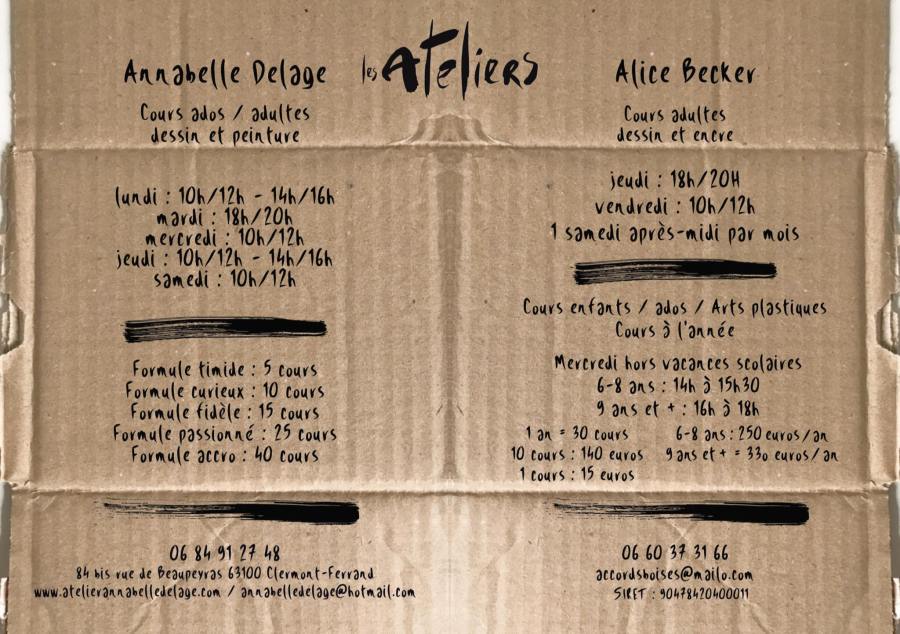 les Ateliers
Annabelle Delage
Cours ados / adultes
dessin et peinture
lundi : 10h/12h - 14h/16h
mardi : 18h/20h
mercredi : 10h/12h
jeudi : 10h/12h - 14h/16h
samedi : 10h/12h
Formule timide : 5 cours
Formule curieux : 10 cours
Formule fidèle : 15 cours
Formule passionné : 25 cours
Formule accro : 40 cours
06 84 91 27 48
84 bis rue de Beaupeyras 63100 Clermont-Ferrand
www.atelierannabelledelage.com / annabelledelage@hotmail.com
Alice Becker
Cours adultes
dessin et encre
jeudi : 18h/20H
vendredi : 10h/12h
1 samedi après-midi par mois
Cours enfants / ados / Arts plastiques
Cours à l'année
Mercredi hors vacances scolaires
6-8 ans : 14h à 15h30
9 ans et + : 16h à 18h
1 an = 30 cours
10 cours : 140 euros
1 cours : 15 euros
6-8 ans : 250 euros/an
9 ans et + = 330 euros/an
06 60 37 31 66
accordsboises@mailo.com
SIRET : 90478420400011